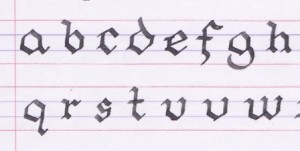 a b c d e f g h
q r s t v v w